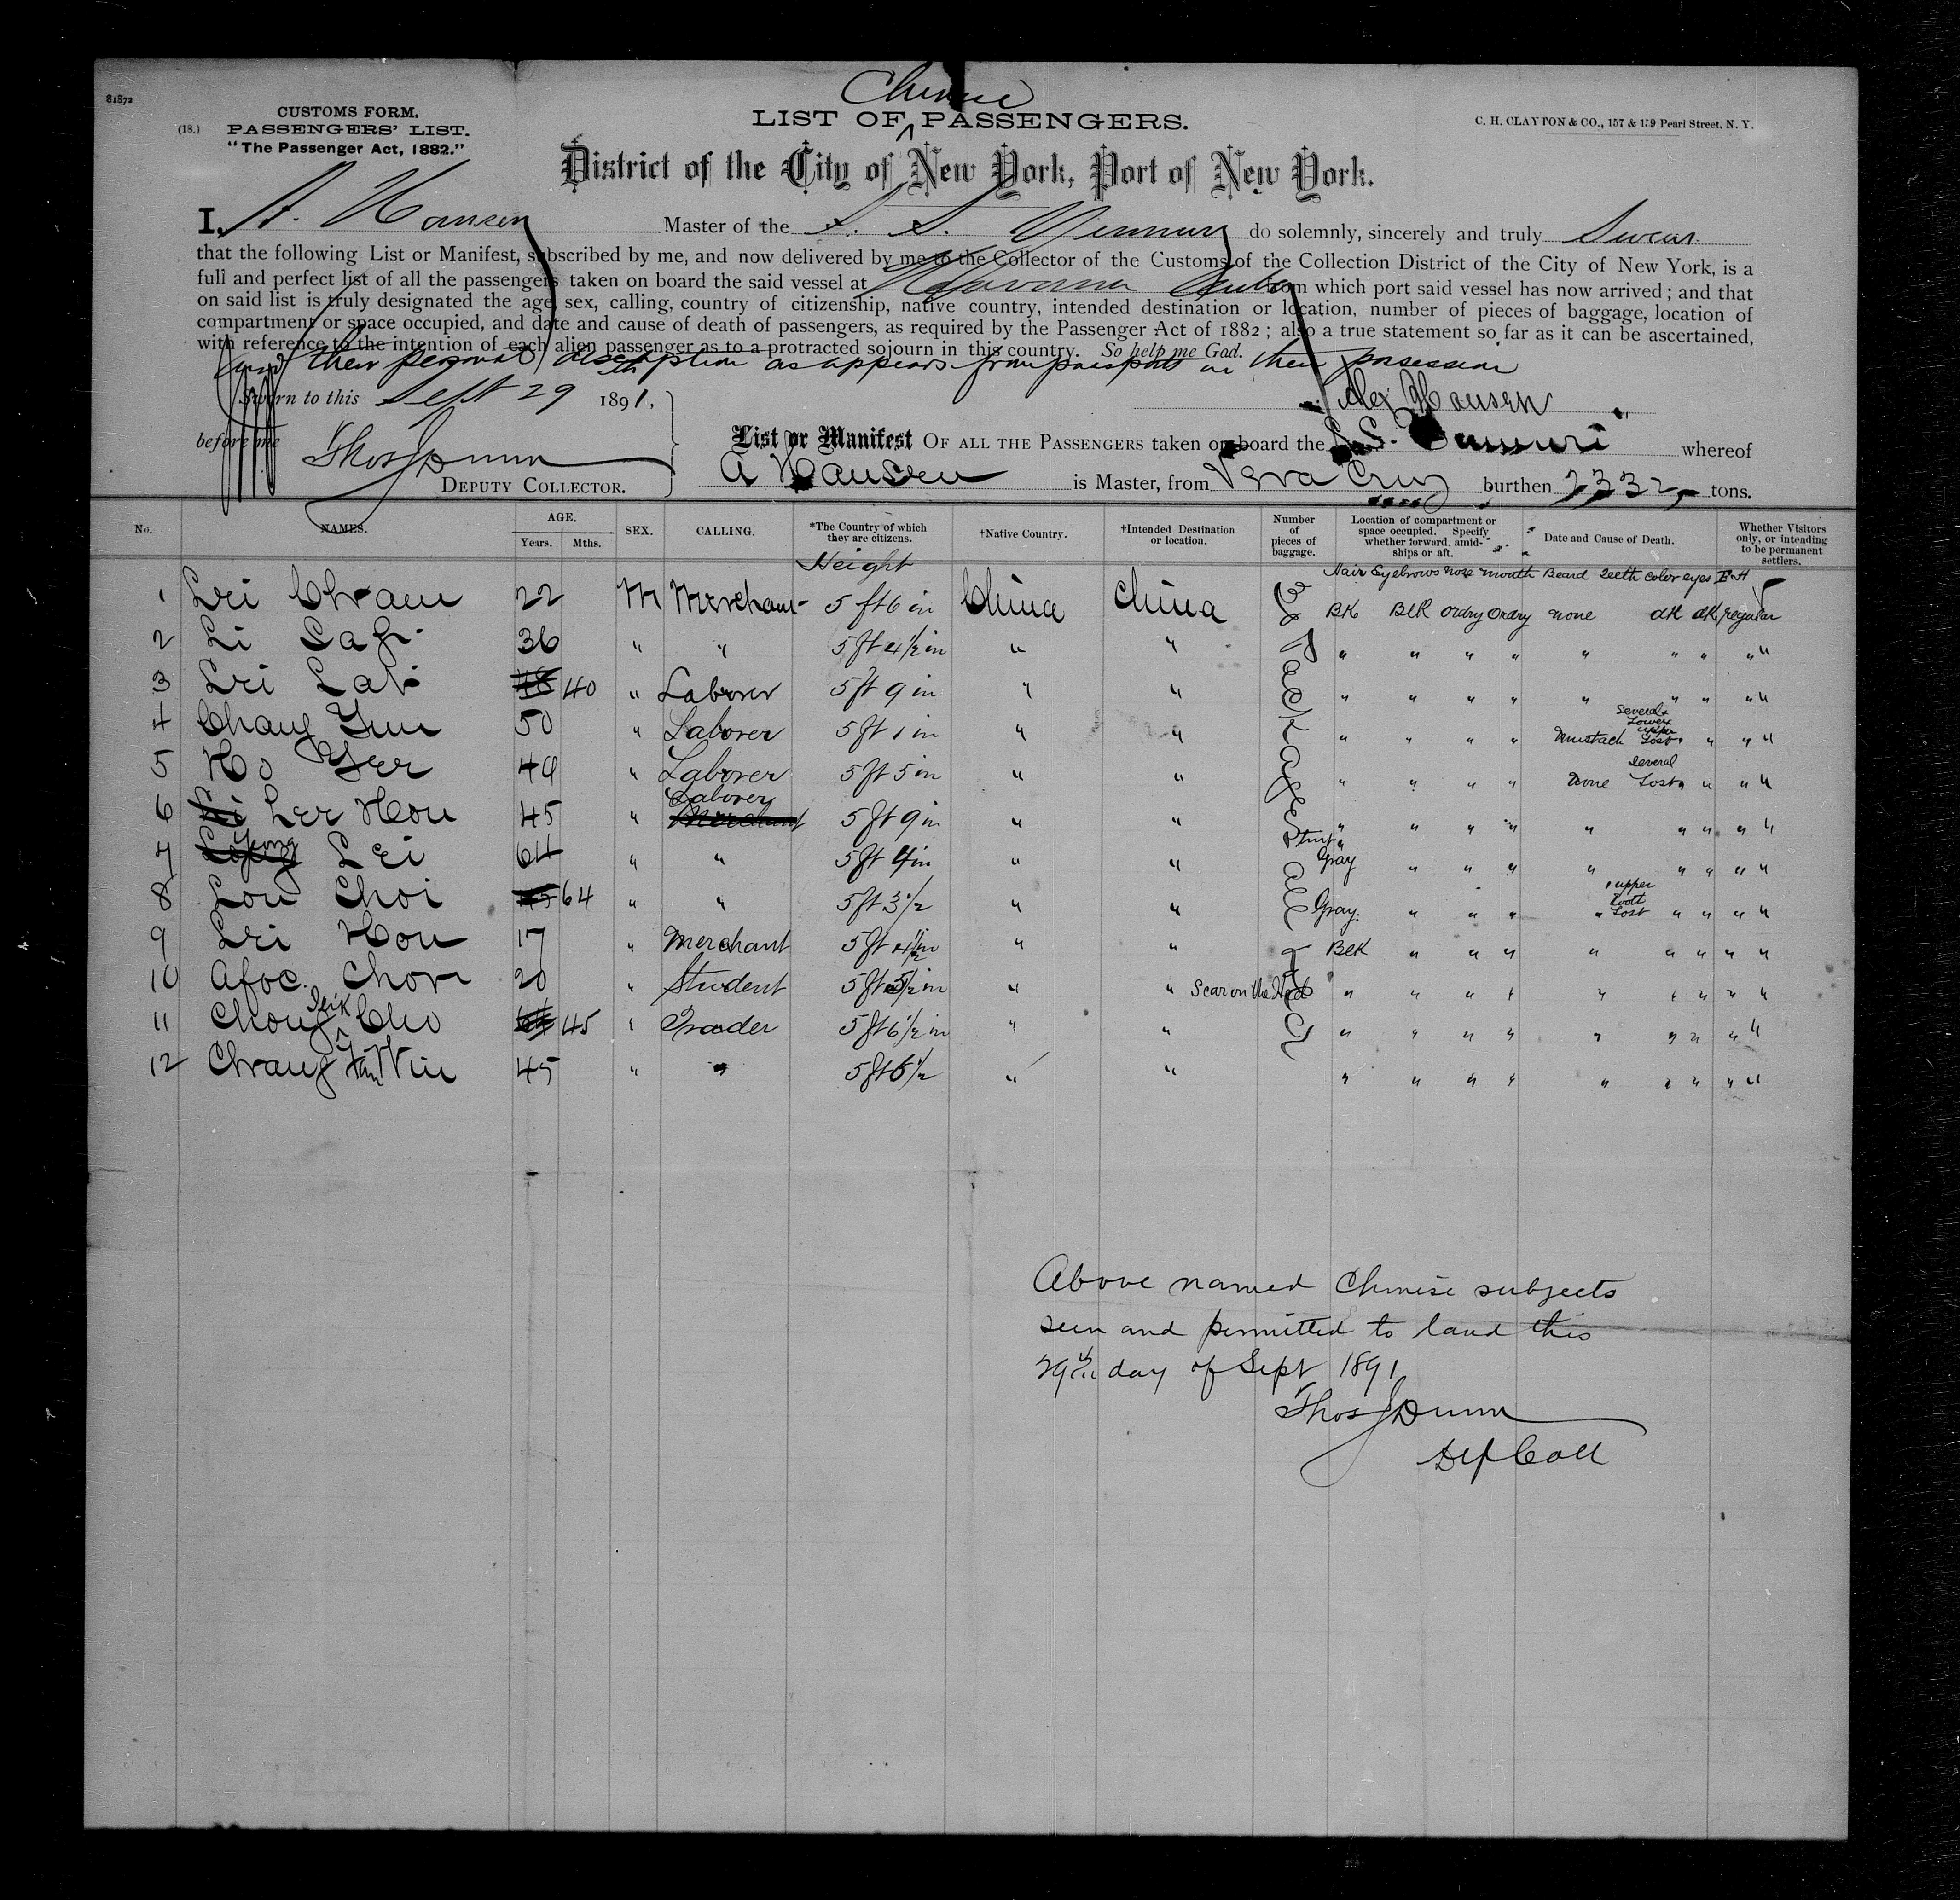 81872
CUSTOMS FORM.
(18.) PASSENGERS' LIST.
"The Passenger Act, 1882."
Chinese
LIST OF ^ PASSENGERS.
C. H. CLAYTON & CO., 157 & 159 Pearl Street, N. Y.
District of the City of New York, Port of New York.
I, A. Hansen Master of the S. S. Yumuri do solemnly, sincerely and truly Swear
that the following List or Manifest, subscribed by me, and now delivered by me to the Collector of the Customs of the Collection District of the City of New York, is a
full and perfect list of all the passengers taken on board the said vessel at Havanna Cuba from which port said vessel has now arrived; and that
on said list is truly designated the age, sex, calling, country of citizenship, native country, intended destination or location, number of pieces of baggage, location of
compartment or space occupied, and date and cause of death of passengers, as required by the Passenger Act of 1882; also a true statement so far as it can be ascertained,
with reference to the intention of each alien passenger as to a protracted sojourn in this country. So help me God.
and their personal description as appears from passports in their possession
Sworn to this Sept 29th 1891,
Alex Hansen
before me Thos J Dunn
DEPUTY COLLECTOR.
List or Manifest OF ALL THE PASSENGERS taken on board the S.S. Yumuri whereof
A Hansen is Master, from Vera Cruz burthen 2332 tons.
No. NAMES. AGE. Years. Mths. SEX. CALLING. *The Country of which they are citizens. †Native Country. †Intended Destination or location. Number of pieces of baggage. Location of compartment or space occupied. Specify whether forward, amidships or aft. Date and Cause of Death. Whether Visitors only, or intending to be permanent settlers.
Height
Hair Eyebrows nose mouth Beard Teeth color eyes
1 Lei Chram 22 M Merchant 5 ft 6 in China China BK BLK ordry Ordry none dK dK regular
2 Li 36 " " 5 ft 4 1/2 in " " " " " " " " " " "
3 Lei 40 " Laborer 5 ft 9 in " " " " " " " " " " "
Several
Lower
upper
4 Chang Yuu 50 " Laborer 5 ft 1 in " " " " " " Mustach Lost " " " "
several
5 Ho Yer 49 " Laborer 5 ft 5 in " " " " " " None Lost " " " "
Laborer
6 Lee Hou 45 " Merchant 5 ft 9 in " " " " " " " " " " "
Yong
7 Lei 64 " " 5 ft 4 in " " Gray " " " " " " " "
upper
tooth
8 Lou Choi 64 " " 5 ft 3 1/2 " " Gray. " " " " Lost " " " "
9 Lei Hou 17 " Merchant 5 ft 4 1/2 in " " BlK " " " " " " " "
10 Afoc Chon 20 " Student 5 ft 5 1/2 in " " Scar on the " " " " " " " " "
11 Chong Cho 45 " Trader 5 ft 6 1/2 in " " " " " " " " " " "
12 Chang Win 45 " " 5 ft 6 1/2 " " " " " " " " " " "
38 Packages all
Above named Chinese subjects
seen and permitted to land this
29th day of Sept 1891
Thos J Dunn
Dep Coll